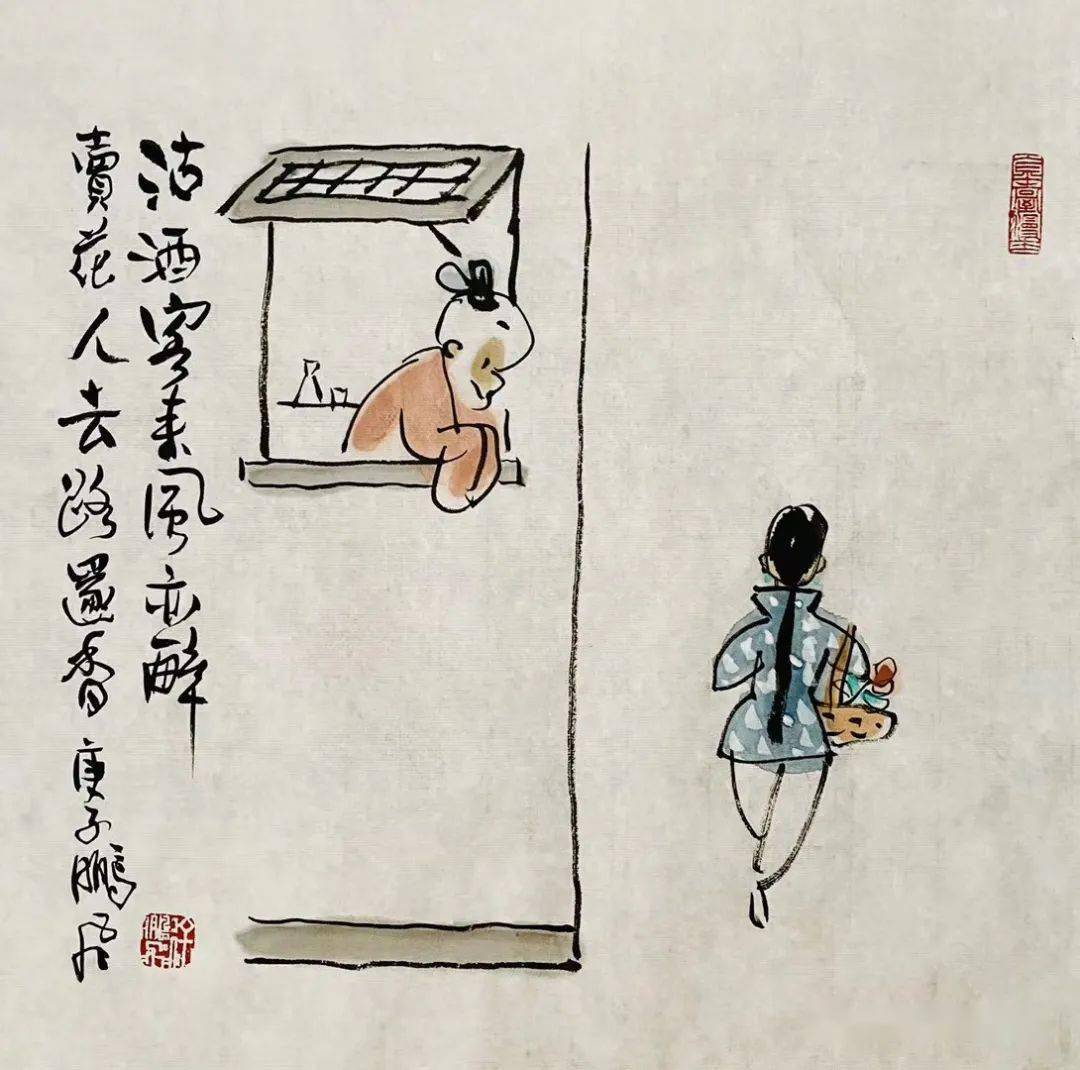 沽酒客来風亦醉
賣花人去路還香 庚子鵬